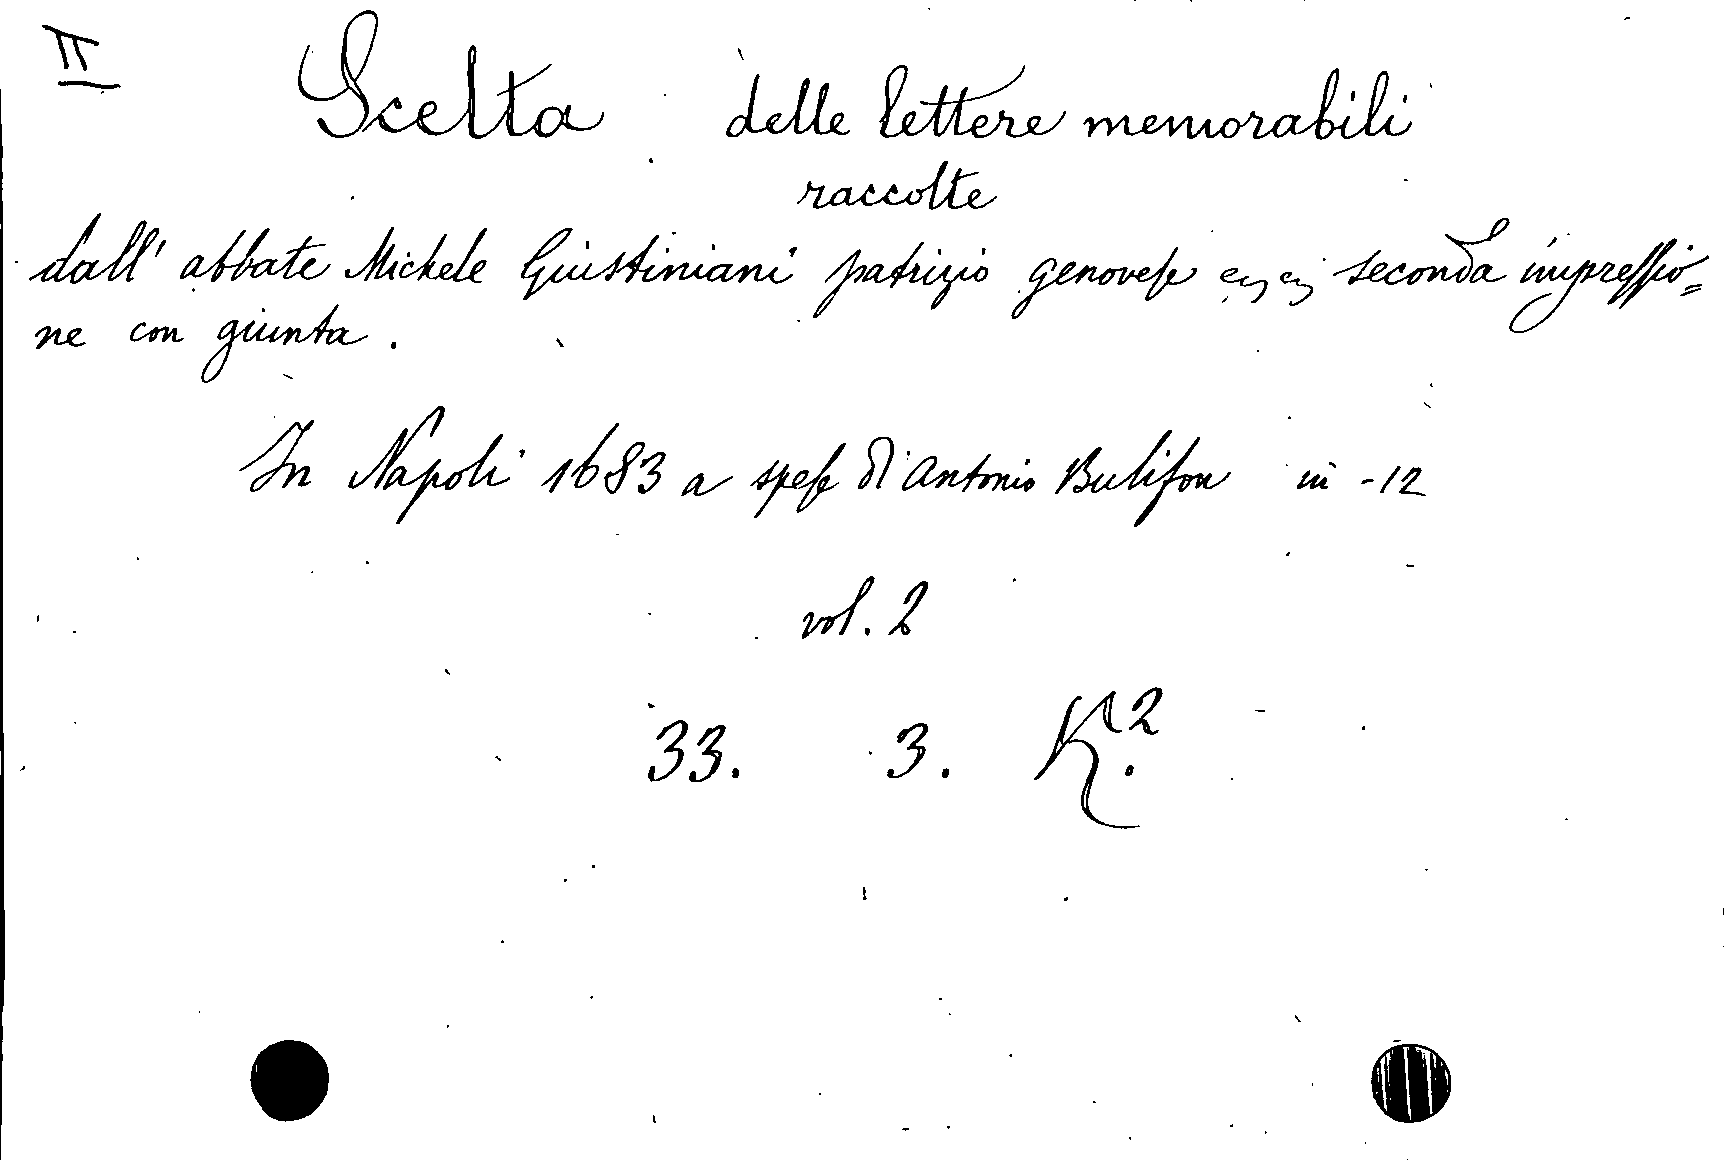 II
Scelta delle lettere memorabili
raccolte
dall' abbate Michele Giustiniani patrizio genovese seconda impressio=
ne con giunta.
In Napoli 1683 a spese di Antonio Bulifon in -12
vol. 2
33. 3. K.²